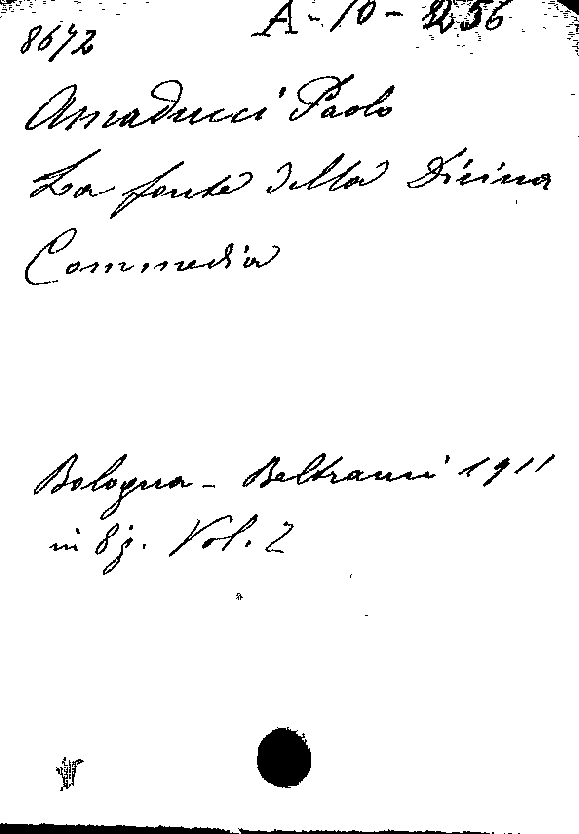 8672
A-10-256
Amaducci Paolo
La fonte della Divina
Commedia
Bologna - Beltrami 1911
in 8ẓ. Vol. 2